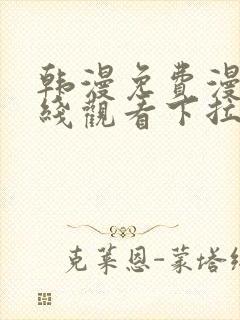 韩漫免費漫
綫觀看下拉
克莱恩-蒙塔